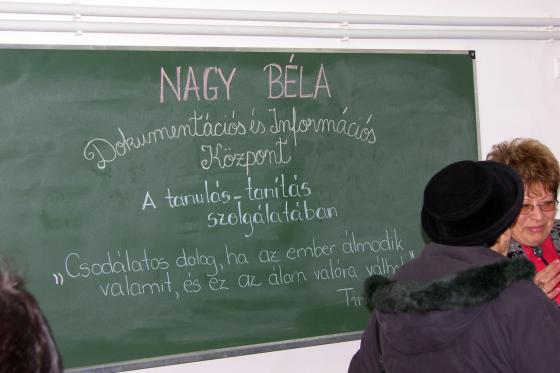 NAGY BÉLA
Dokumentációs és Információs
Központ
A tanulás-tanítás
szolgálatában
„Csodálatos dolog, ha az ember álmodik
valamit, és ez az álom valóra